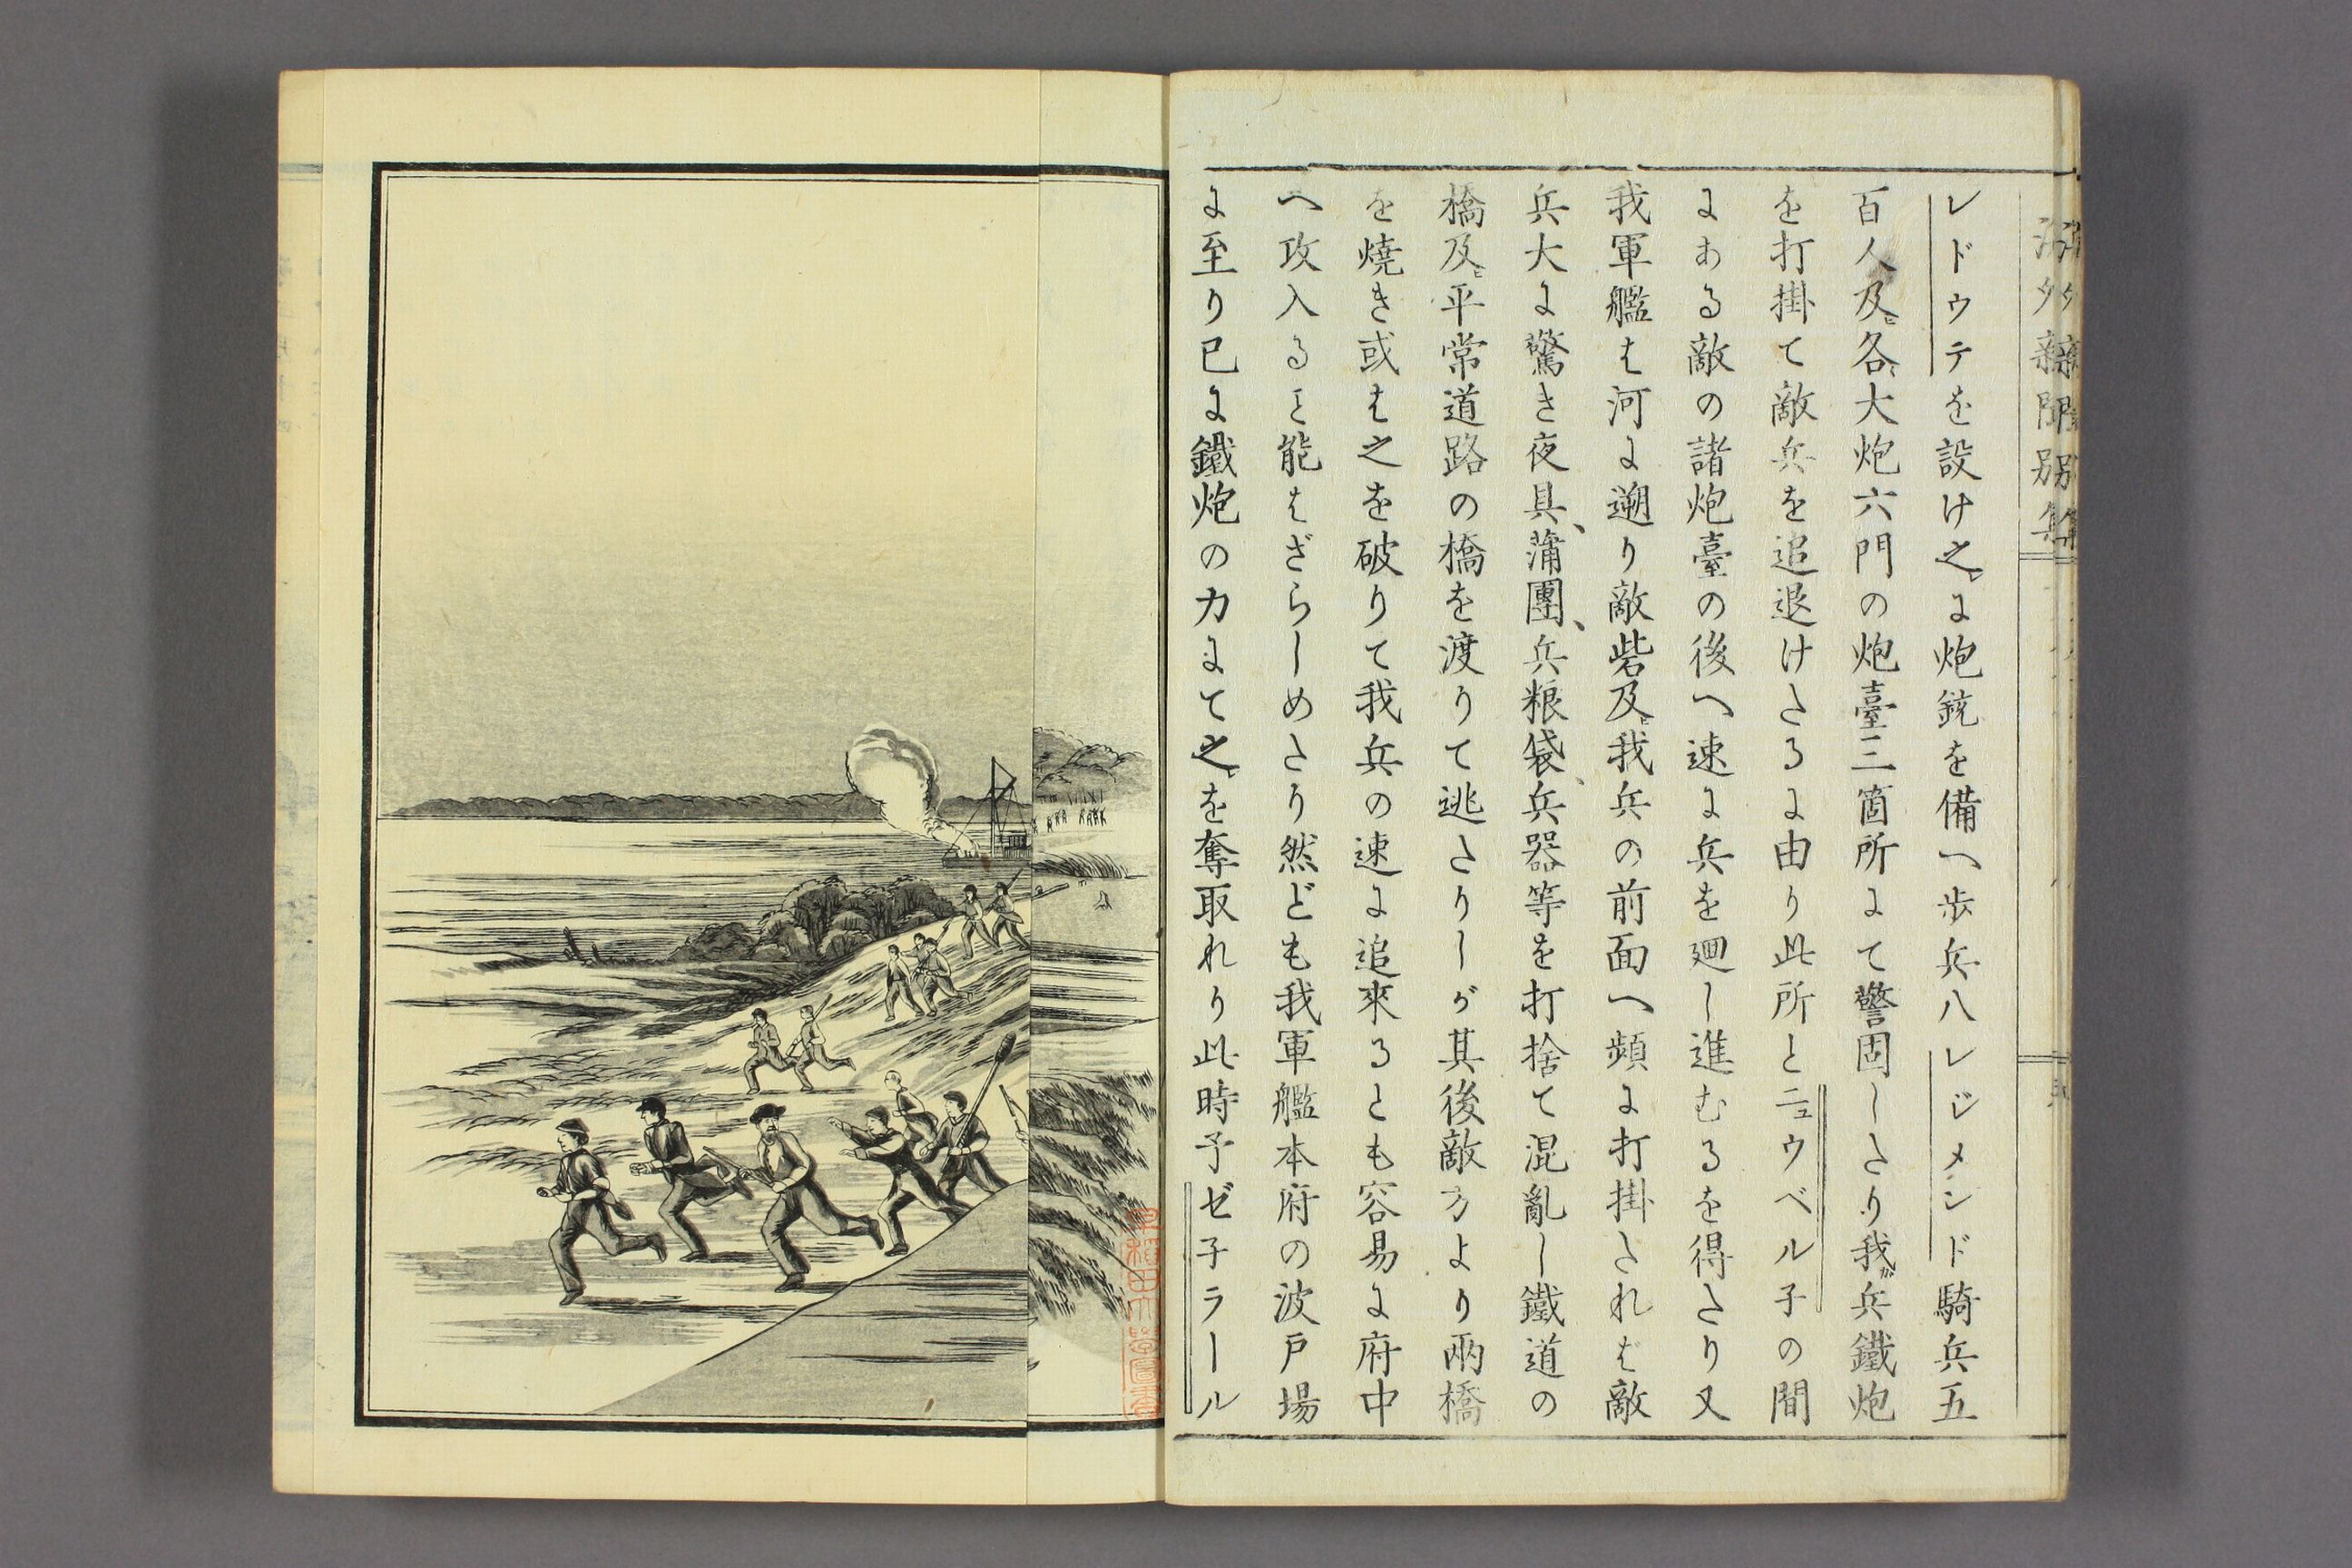 レドウテを設け之に炮銃を備へ歩兵八レジメンド騎兵五
百人及ヒ各〻大炮六門の炮臺三箇所にて警固したり我ガ兵鐵炮
を打掛て敵兵を追退けたるに由り此所とニュウベル子の間
にある敵の諸炮臺の後へ速に兵を廻し進むるを得たり又
我軍艦は河に遡り敵砦及ヒ我兵の前面へ頻に打掛たれば敵
兵大に驚き夜具、蒲團、兵粮袋、兵器等を打捨て混亂し鐵道の
橋及ヒ平常道路の橋を渡りて逃たりしが其後敵方より兩橋
を燒き或は之を破りて我兵の速に追來るとも容易に府中
へ攻入るを能はざらしめたり然ども我軍艦本府の波戸場
に至り已に鐵炮の力にて之を奪取れり此時予ゼ子ラール
早稲田大學圖書